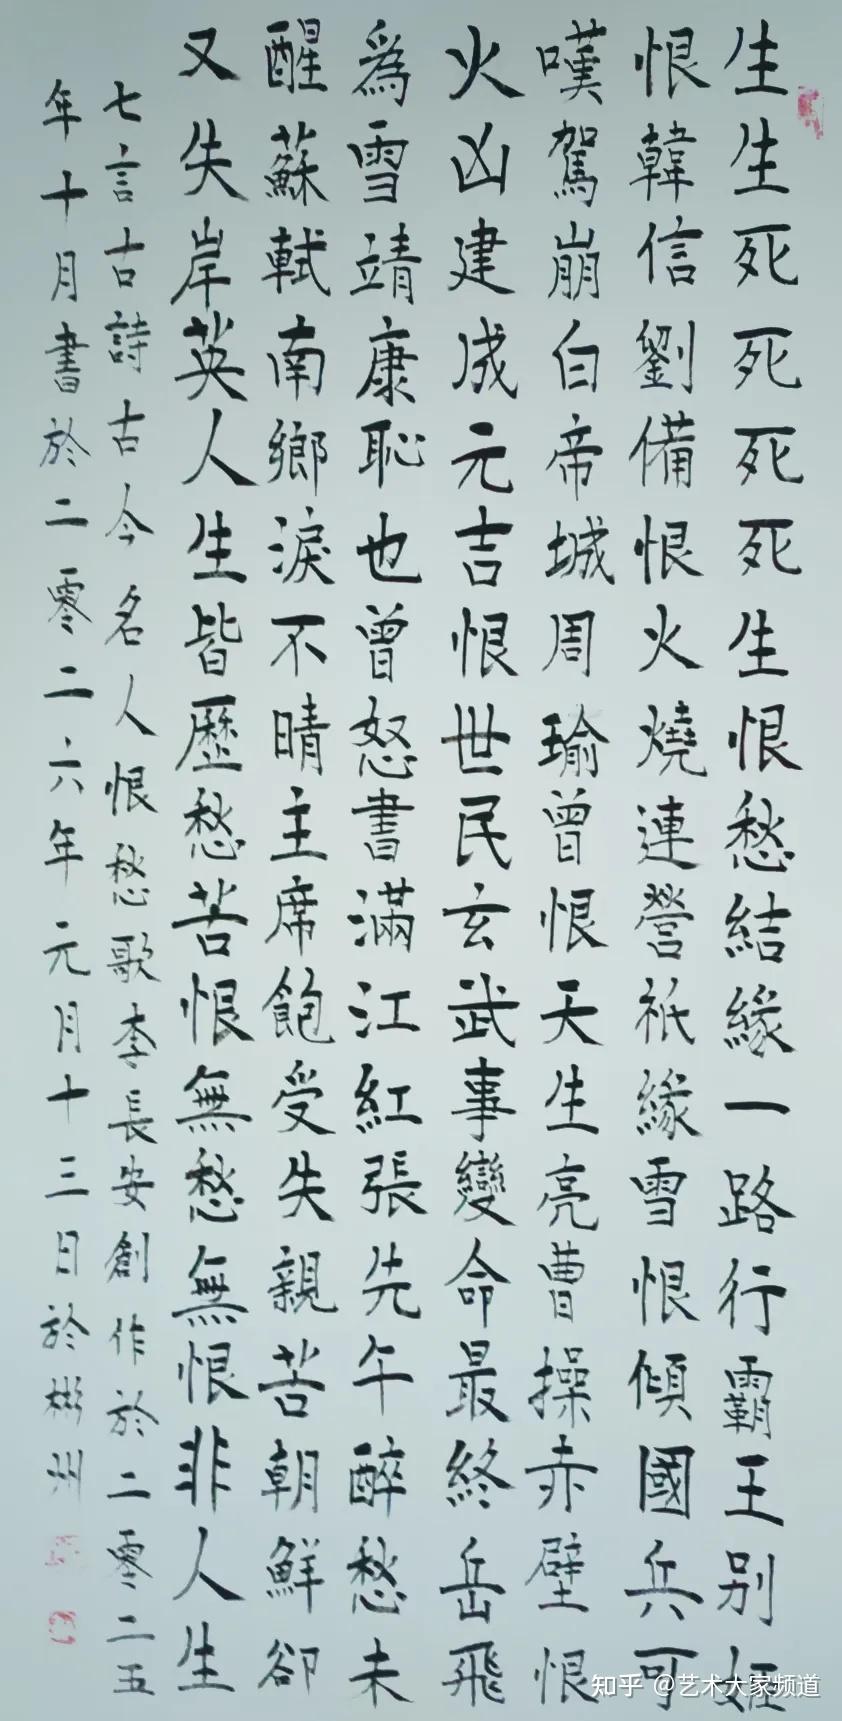 生生死死死死生恨愁結緣一路行霸王别姬
恨韓信劉備恨火燒連營祇緣雪恨傾國兵可
嘆駕崩白帝城周瑜曾恨天生亮曹操赤壁恨
火凶建成元吉恨世民玄武事變命最終岳飛
爲雪靖康恥也曾怒書滿江紅張先午醉愁未
醒蘇軾南鄉淚不晴主席飽受失親苦朝鮮卻
又失岸英人生皆歷愁苦恨無愁無恨非人生
七言古詩古今名人恨愁歌李長安創作於二零二五
年十月書於二零二六年元月十三日於彬州
知乎 @艺术大家频道